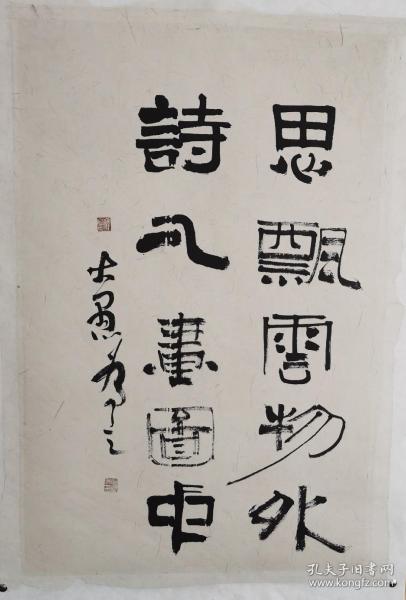 思飄雲物外
詩入畫圖中
大愚
孔夫子旧书网